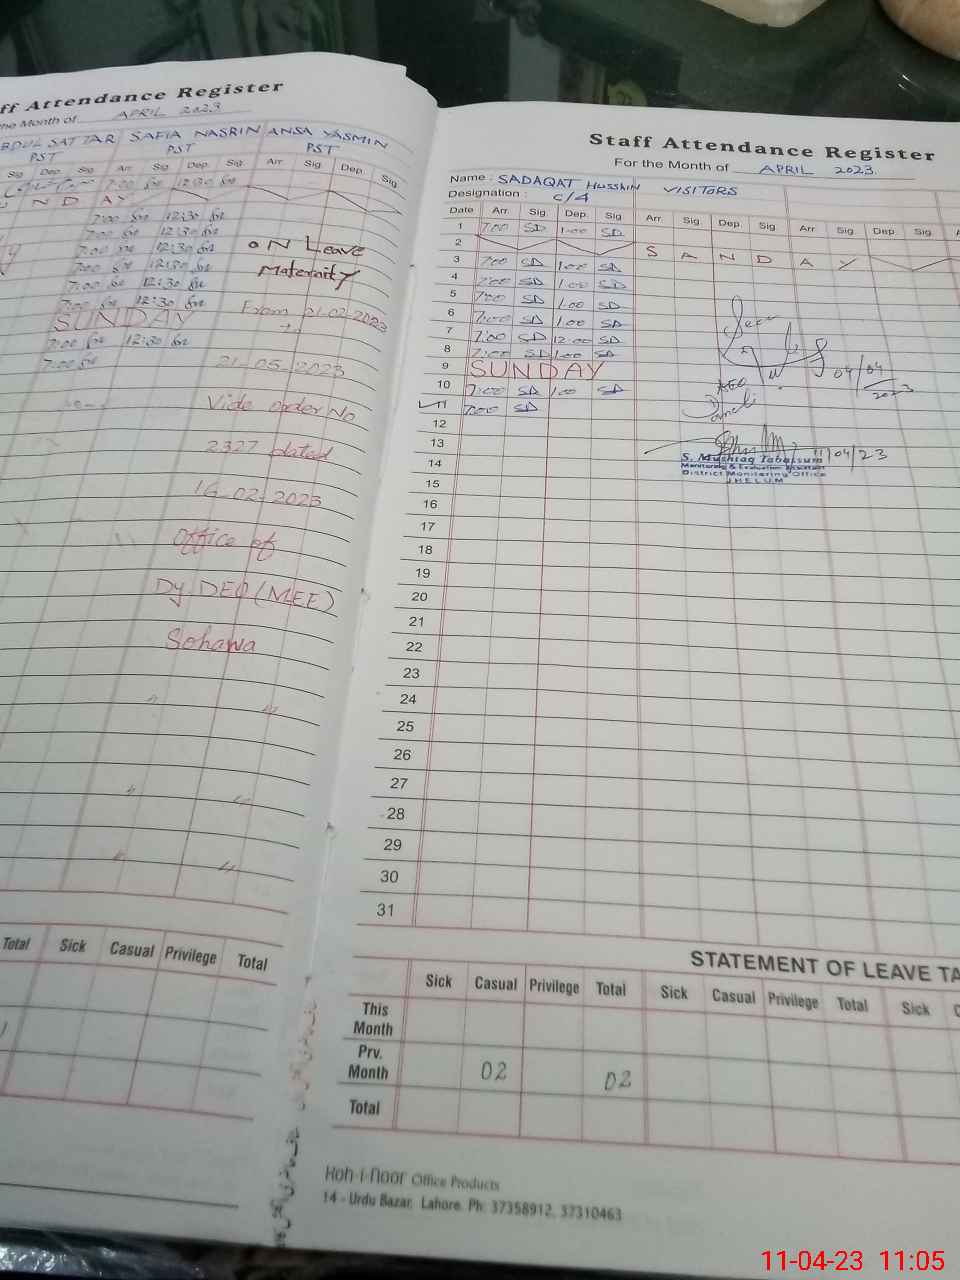 ff Attendance Register
he Month of APRIL 2023
BDUL SATTAR SAFIA NASRIN ANSA YASMIN
PST PST PST
Sig Dep. Sig Arr Sig Dep. Sig. Arr Sig Dep. Sig
7:00 12:30
N D AY
7:00 12:30
7:00 12:30
7:00 12:30
7:00 12:30
7:00 12:30
7:00 12:30
SUNDAY
7:00 12:30
7:00
ON Leave
Maternity
From 21-02-2023
to
21-05-2023
Vide order No
2327 dated
16-02-2023
Office of
Dy. DEO (MEE)
Sohawa
Total Sick Casual Privilege Total
Staff Attendance Register
For the Month of APRIL 2023
Name : SADAQAT HUSSAIN VISITORS
Designation : C/4
Date Arr. Sig. Dep. Sig Arr. Sig. Dep. Sig. Arr. Sig. Dep. Sig.
1 7:00 SD 1:00 SD
2 S A N D A Y
3 7:00 SD 1:00 SD
4 7:00 SD 1:00 SD
5 7:00 SD 1:00 SD
6 7:00 SD 1:00 SD
7 7:00 SD 12:00 SD
8 7:00 SD 1:00 SD
9 SUNDAY
10 7:00 SD 1:00 SD
11 7:00 SD
12
13
14
15
16
17
18
19
20
21
22
23
24
25
26
27
28
29
30
31
Seen
04/04
2023
AEO
11/04/23
S. Mushtaq Tabassum
Monitoring & Evaluation Assistant
District Monitoring Office
JHELUM
STATEMENT OF LEAVE TA
Sick Casual Privilege Total Sick Casual Privilege Total Sick
This Month
Prv. Month 02 02
Total
Koh-i-Noor Office Products
14 - Urdu Bazar, Lahore. Ph: 37358912, 37310463
11-04-23 11:05